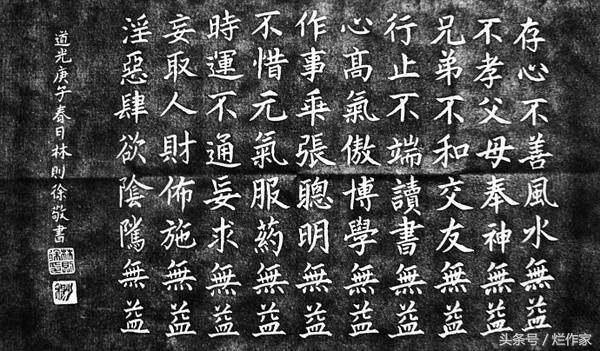 存心不善風水無益
不孝父母奉神無益
兄弟不和交友無益
行止不端讀書無益
心髙氣傲博學無益
作事乖張聰明無益
不惜元氣服葯無益
時運不通妄求無益
妄取人財佈施無益
淫惡肆欲陰騭無益
道光庚午春日林則徐敬書
头条号 / 烂作家